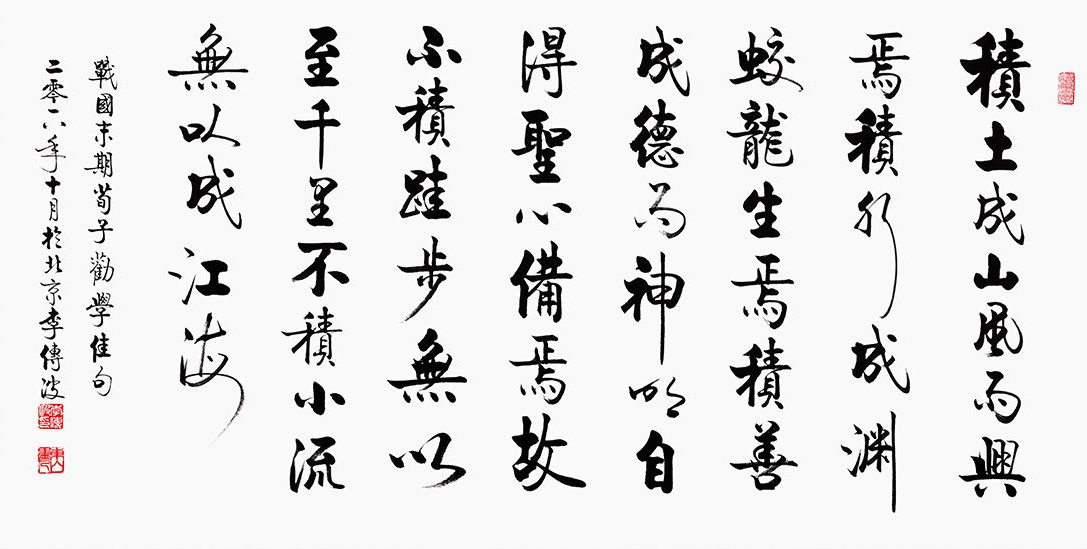 積土成山風雨興
焉積水成渊
蛟龍生焉積善
成德而神明自
得聖心備焉故
不積跬步無以
至千里不積小流
無以成江海
戰國末期荀子勸學佳句
二零一八年十月於北京李傳波